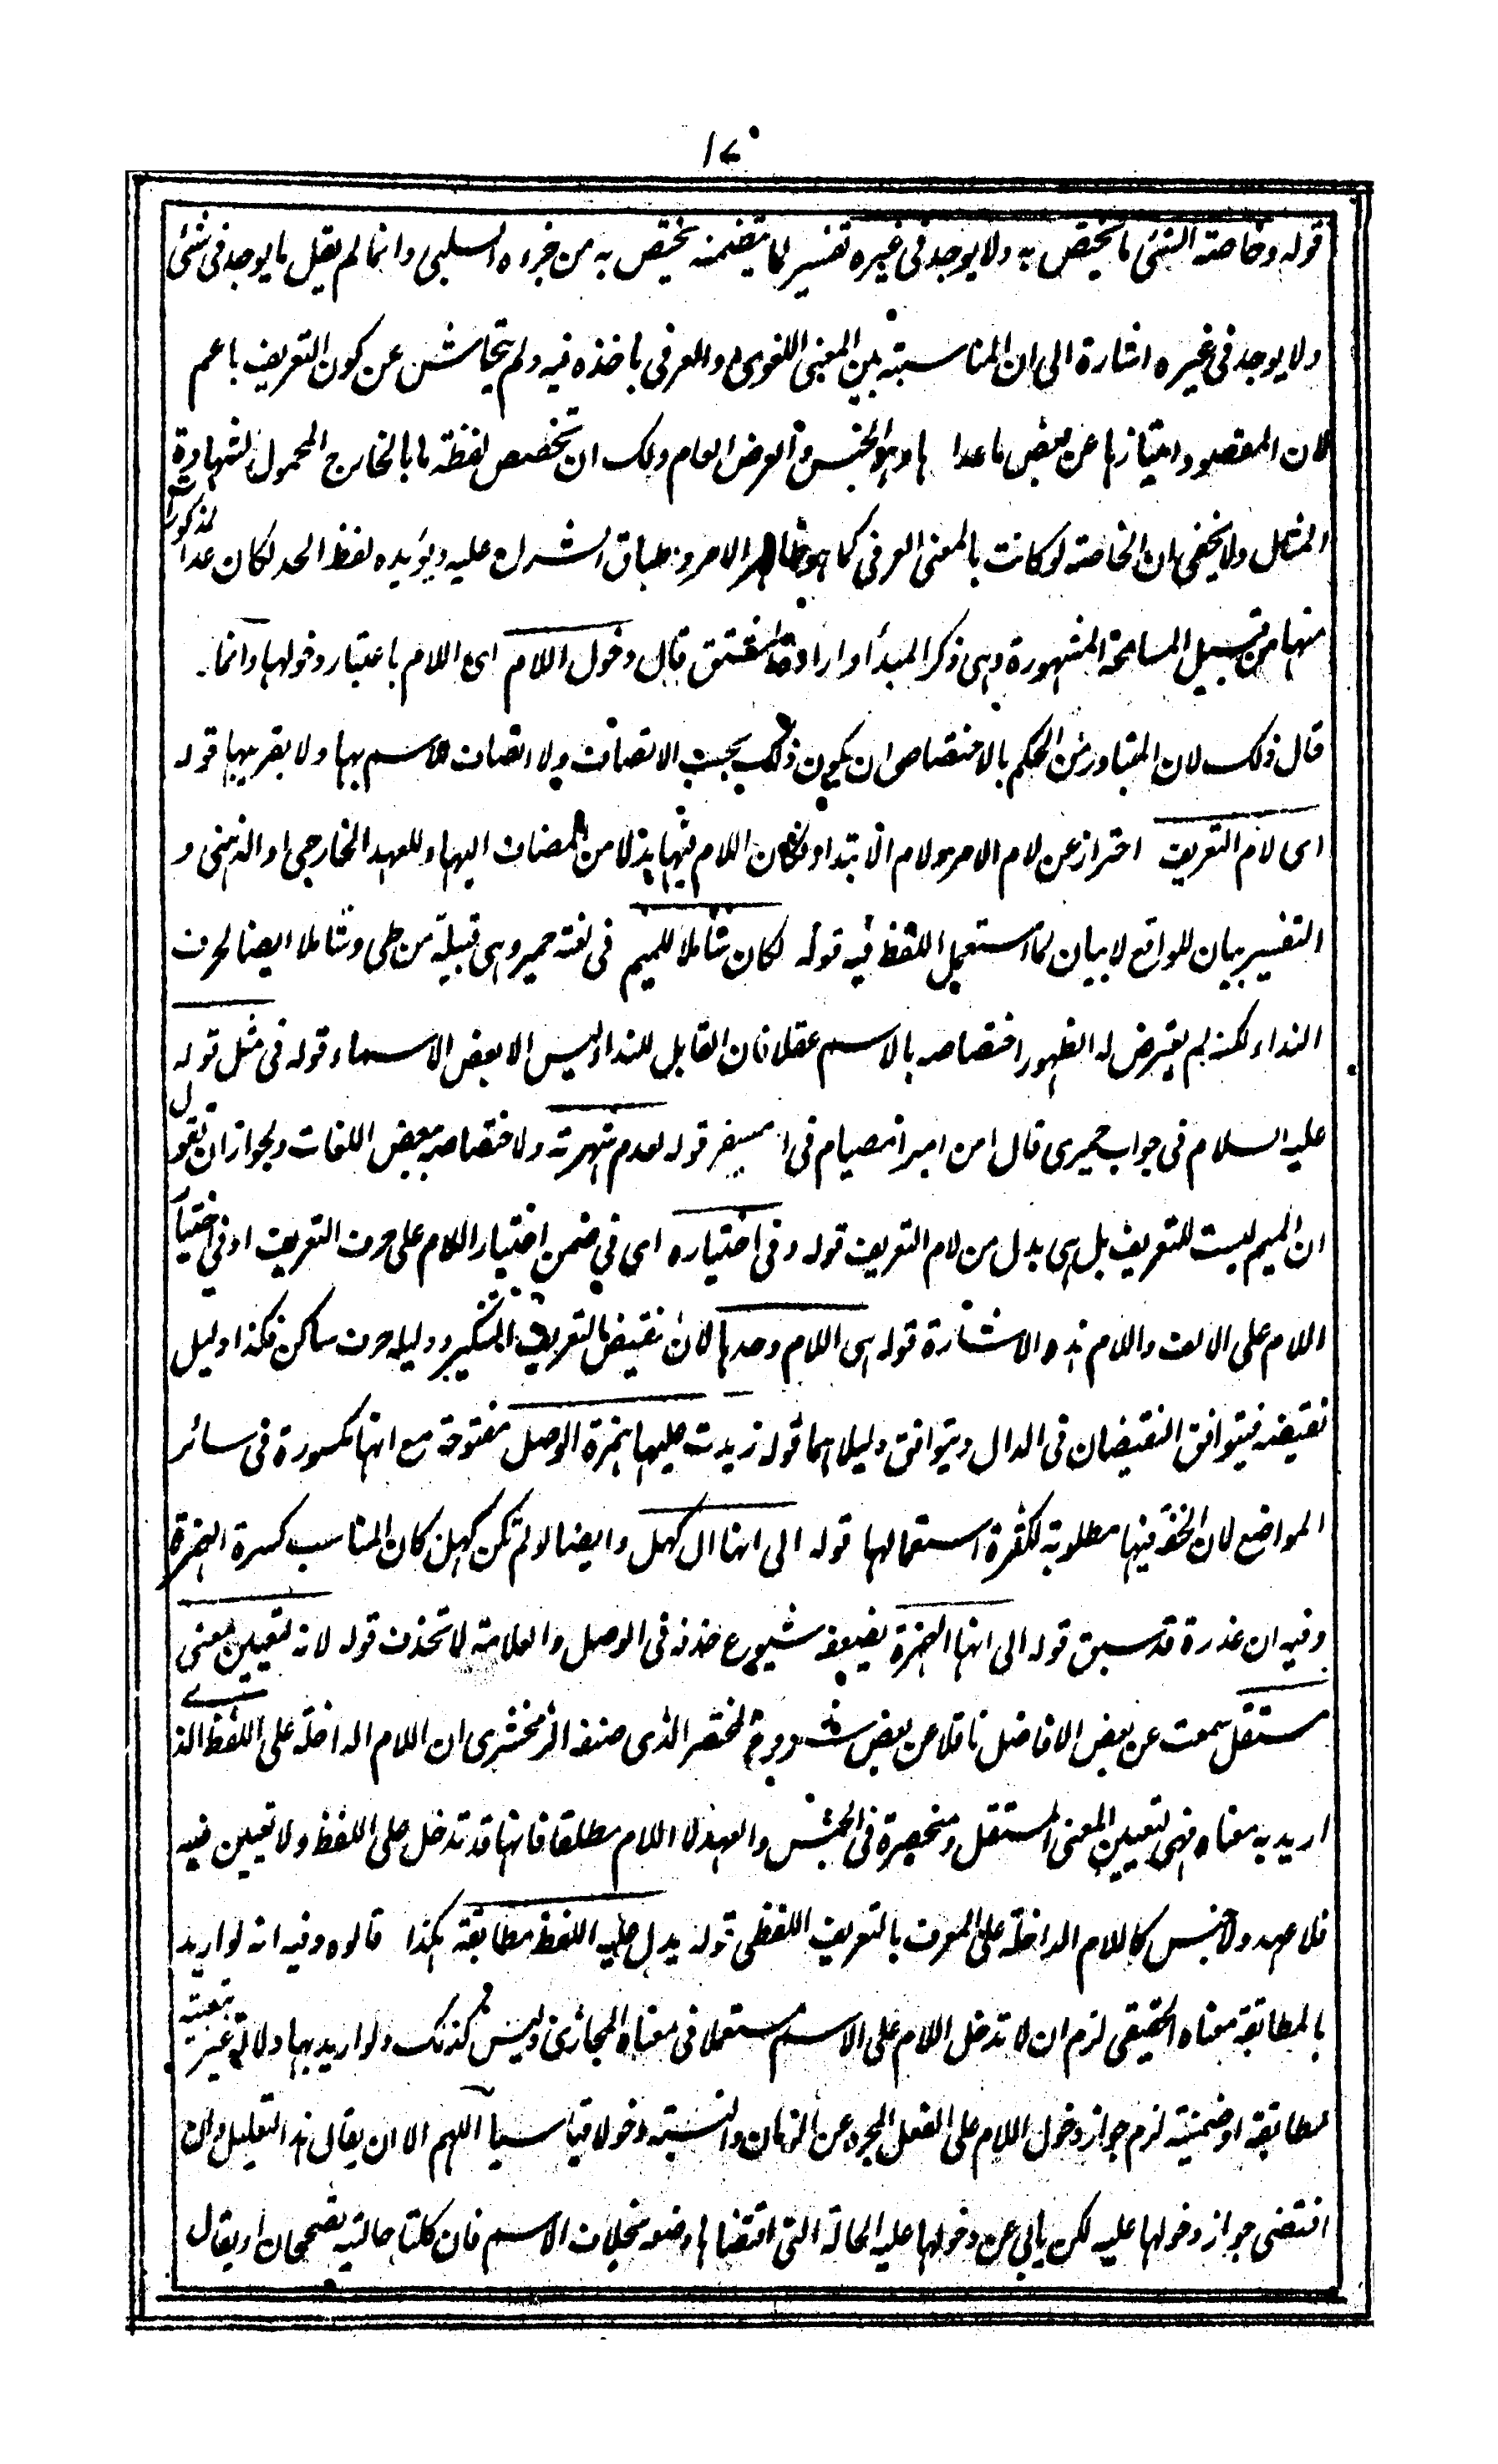 ١٧٠
قوله وخاصة الشئ ما يختص به ولا يوجد فى غيره تفسير لما يتضمنه يختص به من جزءه السلبى وانما لم يقل ما يوجد فى شئ
ولا يوجد فى غيره اشارة الى ان المناسبة بين المعنى اللغوى والعرفى باخذه فيه ولم يتحاش عن كون التعريف باعم
لان المقصود امتيازها عن بعض ما عداها وهو الجنس والعرض العام ولك ان تخصص لفظة ما بالخارج المحمول بشهادة
المثل ولا يخفى ان الخاصة لو كانت بالمعنى العرفى كما هو ظاهر الامر وطباق الشراح عليه ويؤيده لفظ الحد لكان عد المذكورات
منها من قبيل المسامحة المشهورة وهى ذكر المبدأ وارادة المشتق قال دخول اللام اى اللام باعتبار دخولها وانما
قال ذلك لان المتبادر من الحكم بالاختصاص ان يكون ذلك بحسب الاتصاف ولا اتصاف للاسم بها ولا بقربيها قوله
اى لام التعريف احتراز عن لام الامر ولام الابتداء وكان اللام فيها بدلا من المضاف اليها او للعهد الخارجى او الذهنى و
التفسير بيان للواقع لا بيان لما استعمل اللفظ فيه قوله لكان شاملا للميم فى لغة حمير وهى قبيلة من طى وشاملا ايضا لحرف
النداء لكنه لم يتعرض له لظهور اختصاصه بالاسم عقلا فان القابل للنداء ليس الا بعض الاسماء قوله فى مثل قوله
عليه السلام فى جواب حميرى قال امن امبر امصيام فى امسفر قوله لعدم شهرته ولاختصاصه ببعض اللغات ولجواز ان تقول
ان الميم ليست للتعريف بل هى بدل من لام التعريف قوله وفى اختياره اى فى ضمن اختيار اللام على حرف التعريف او فى اختيار
اللام على الالف واللام هذه الاشارة قوله هى اللام وحدها لان نقيض التعريف التنكير ودليله حرف ساكن فكذا دليل
نقيضه فيتوافق النقيضان فى الدال ويتوافق دليلاهما قوله زيدت عليها همزة الوصل مفتوحة مع انها مكسورة فى سائر
المواضع لان الخفة فيها مطلوبة لكثرة استعمالها قوله الى انها ال كهل وايضا لو لم تكن كهل كان المناسب كسرة الهمزة
وفيه ان عذره قد سبق قوله الى انها الهمزة يضعفه شيوع حذفه فى الوصل والعلامة لا تحذف قوله لانه لتعيين معنى
مستقل سمعت عن بعض الافاضل ناقلا عن بعض شروح المختصر الذى صنفه الزمخشرى ان اللام الداخلة على اللفظ الذى
اريد به معناه فهى لتعيين المعنى المستقل ومنحصرة فى الجنس والعهد لا اللام مطلقا فانها قد تدخل على اللفظ ولا تعيين فيه
فلا عهد ولا جنس كاللام الداخلة على المعرف بالتعريف اللفظى قوله يدل عليه اللفظ مطابقة هكذا قالوه وفيه انه لو اريد
بالمطابقة معناه الحقيقى لزم ان لا تدخل اللام على الاسم مستعملا فى معناه المجازى وليس كذلك ولو اريد بها دلالة غير تبعية
مطابقة او ضمنية لزم جواز دخول اللام على الفعل المجرد عن الزمان والنسبة دخولا قياسيا اللهم الا ان يقال هذا التعليل وان
اقتضى جواز دخولها عليه لكن يابى عن دخولها عليه الحالة التى اقتضاها وضعه بخلاف الاسم فان كلتا حالتيه تصححان او يقال